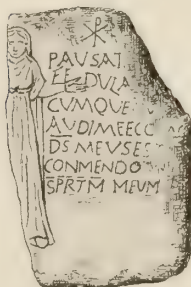 ☧
PAUSAT
FEDULA
CUMQUE
AUDIMEECC
DS MEUS ES
CONMENDO
SPRTM MEUM